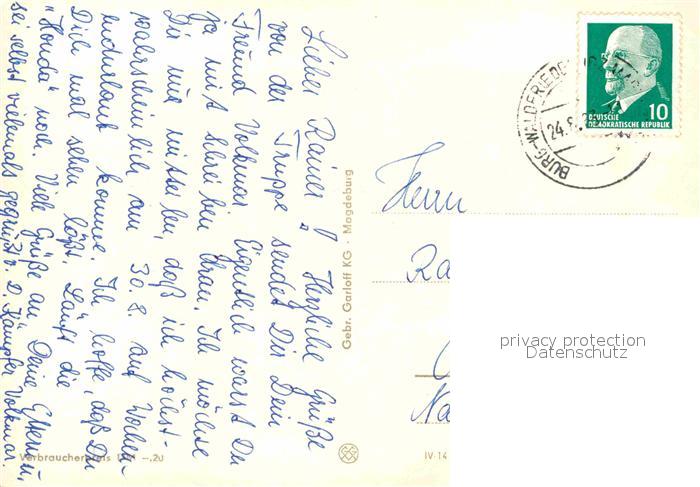 Lieber Rainer! Herzliche Grüße
von der "Truppe" sendet Dir Dein
Freund Volkmar. Eigentlich warst Du
ja mit schreiben dran. Ich möchte
Dir nur mitteilen, daß ich höchst-
wahrscheinlich am 30. 8. auf Wochen-
endurlaub komme. Ich hoffe, daß Du
Dich mal sehen läßt. Läuft die
"Honda" noch. Viele Grüße an Deine Eltern u.
sei selbst vielemals gegrüßt v. D. Kämpfer Volkmar.
Verbraucherpreis -.20
Gebr. Garloff KG · Magdeburg
IV-14
BURG-WALDFRIEDEN
24.
10
DEUTSCHE
DEMOKRATISCHE REPUBLIK
Herrn
Ra
Na
privacy protection
Datenschutz